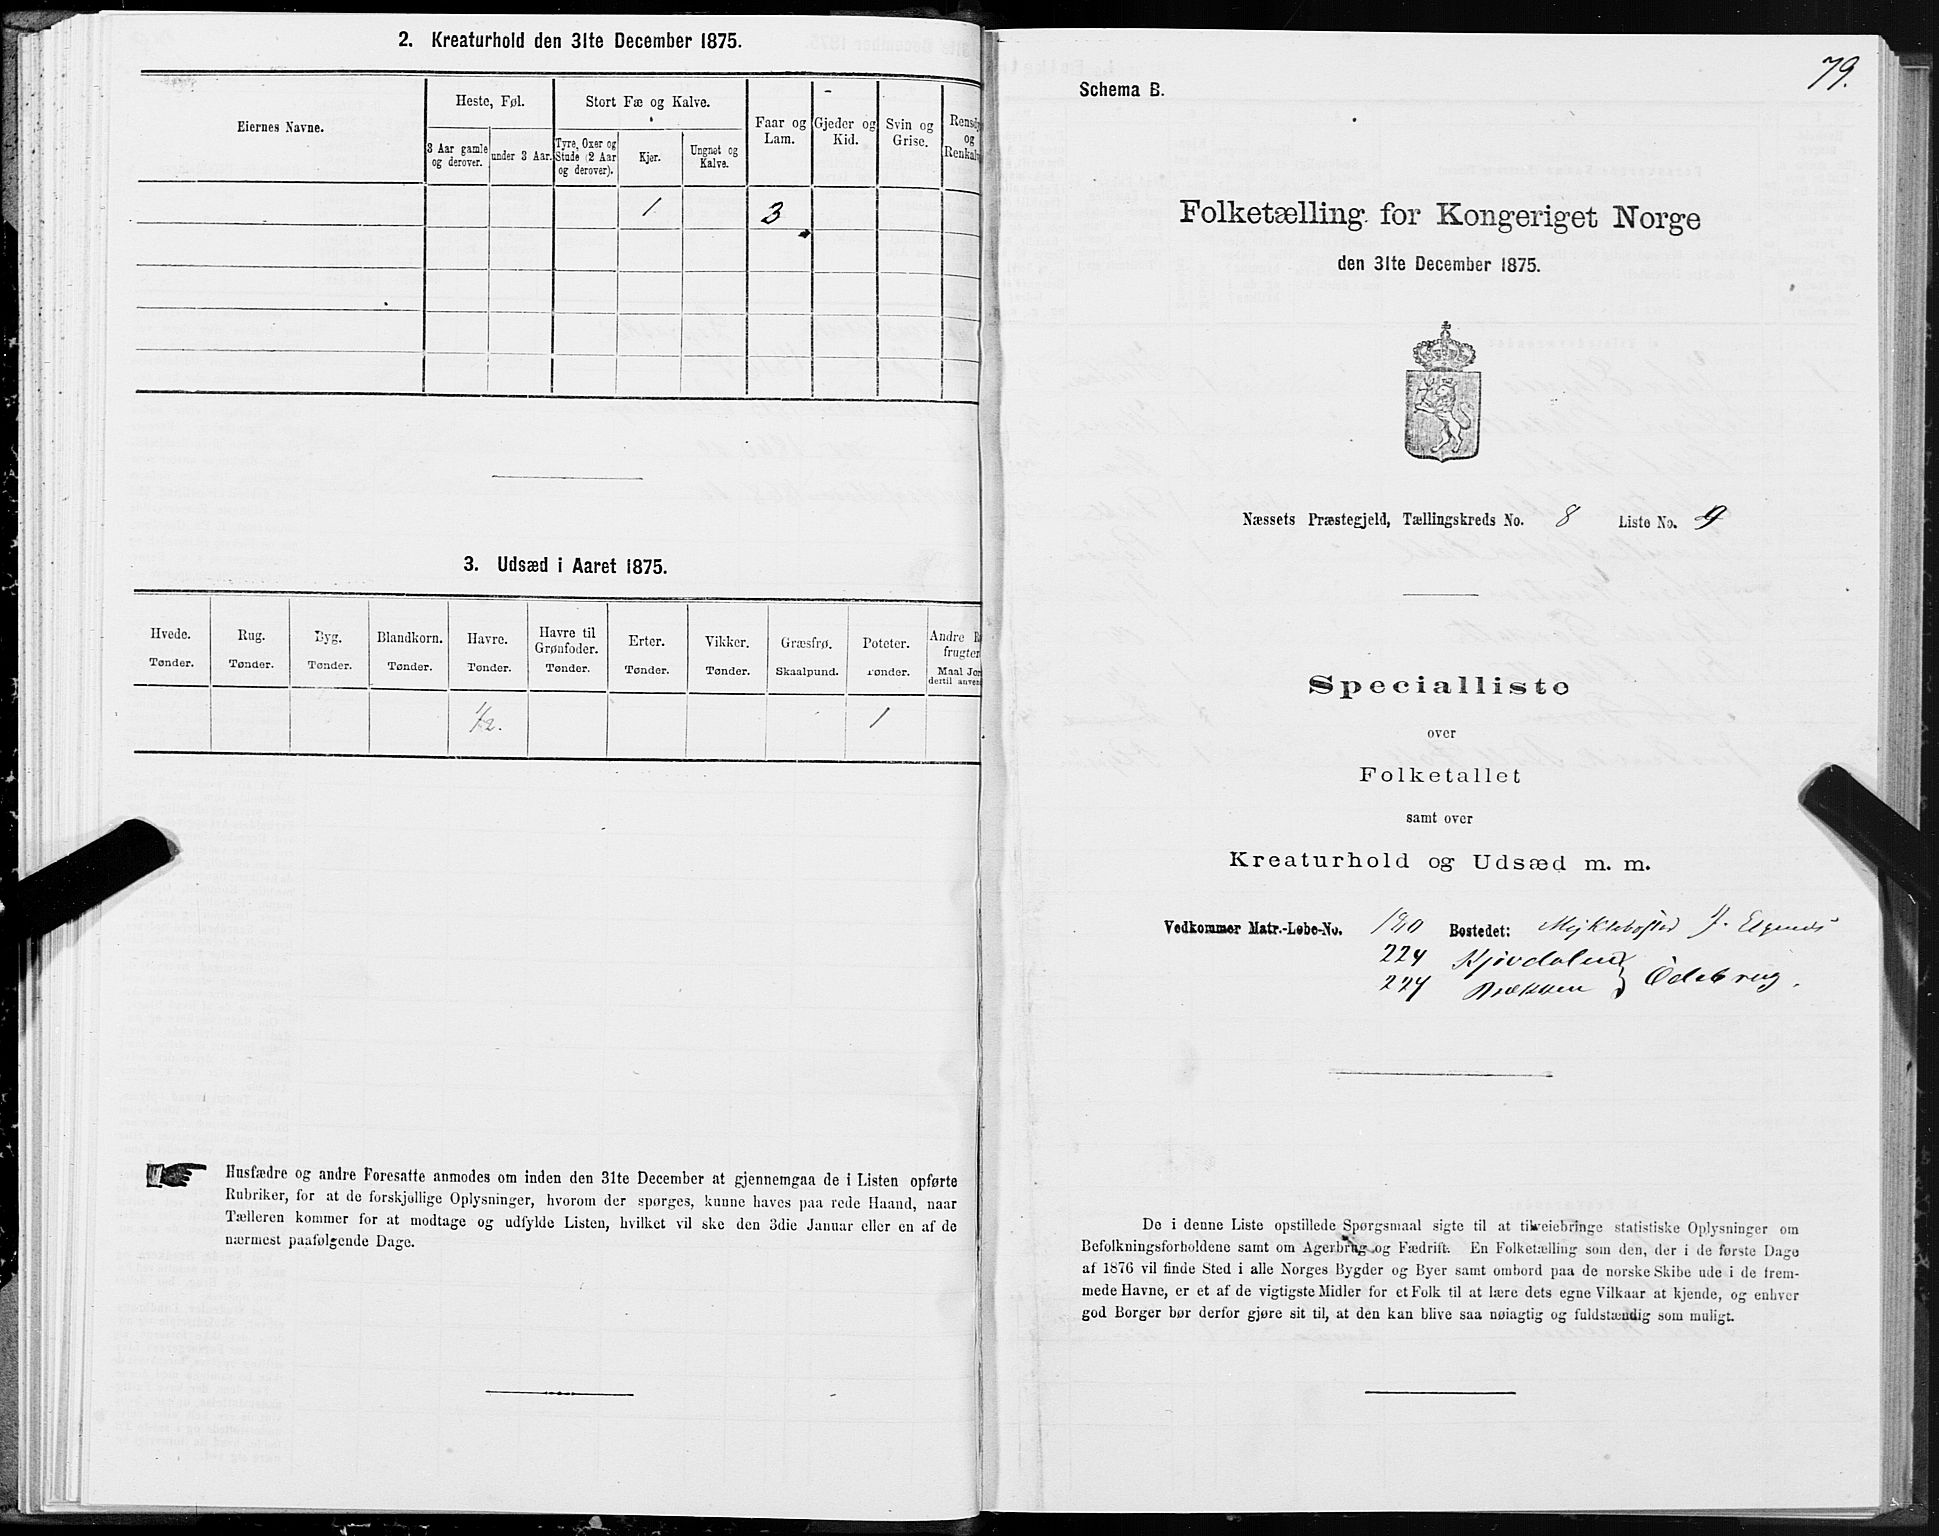 2. Kreaturhold den 31te December 1875.
Eiernes Navne.
Heste, Føl.
Stort Fæ og Kalve.
Faar og Lam.
Gjeder og Kid.
Svin og Grise.
Rensdy
og
Renkalv
3 Aar gamle og derover.
under 3 Aar.
Tyre, Oxer og Stude (2 Aar og derover).
Kjør.
Ungnøt og Kalve.
1 3
3. Udsæd i Aaret 1875.
Hvede. Rug. Byg. Blandkorn. Havre. Havre til Grønfoder. Erter. Vikker. Græsfrø. Poteter. Andre R
frugter
Tønder. Tønder. Tønder. Tønder. Tønder. Tønder. Tønder. Tønder. Skaalpund. Tønder. Maal Jor
dertil anvend
1/2. 1
Husfædre og andre Foresatte anmodes om inden den 31te December at gjennemgaa de i Listen opførte
Rubriker, for at de forskjellige Oplysninger, hvorom der spørges, kunne haves paa rede Haand, naar
Tælleren kommer for at modtage og udfylde Listen, hvilket vil ske den 3die Januar eller en af de
nærmest paafølgende Dage.
79.
Schema B.
Folketælling for Kongeriget Norge
den 31te December 1875.
Næssets Præstegjeld, Tællingskreds No. 8 Liste No. 9
Specialliste
over
Folketallet
samt over
Kreaturhold og Udsæd m. m.
Vedkommer Matr.-Løbe-No. 120 Bostedet: Myklebostad J. Elgenæs
224 Kjøvdalen
227 Brækken } Ødebrug.
De i denne Liste opstillede Spørgsmaal sigte til at tilveiebringe statistiske Oplysninger om
Befolkningsforholdene samt om Agerbrug og Fædrift. En Folketælling som den, der i de første Dage
af 1876 vil finde Sted i alle Norges Bygder og Byer samt ombord paa de norske Skibe ude i de frem-
mede Havne, er et af de vigtigste Midler for et Folk til at lære dets egne Vilkaar at kjende, og enhver
god Borger bør derfor gjøre sit til, at den kan blive saa nøiagtig og fuldstændig som muligt.